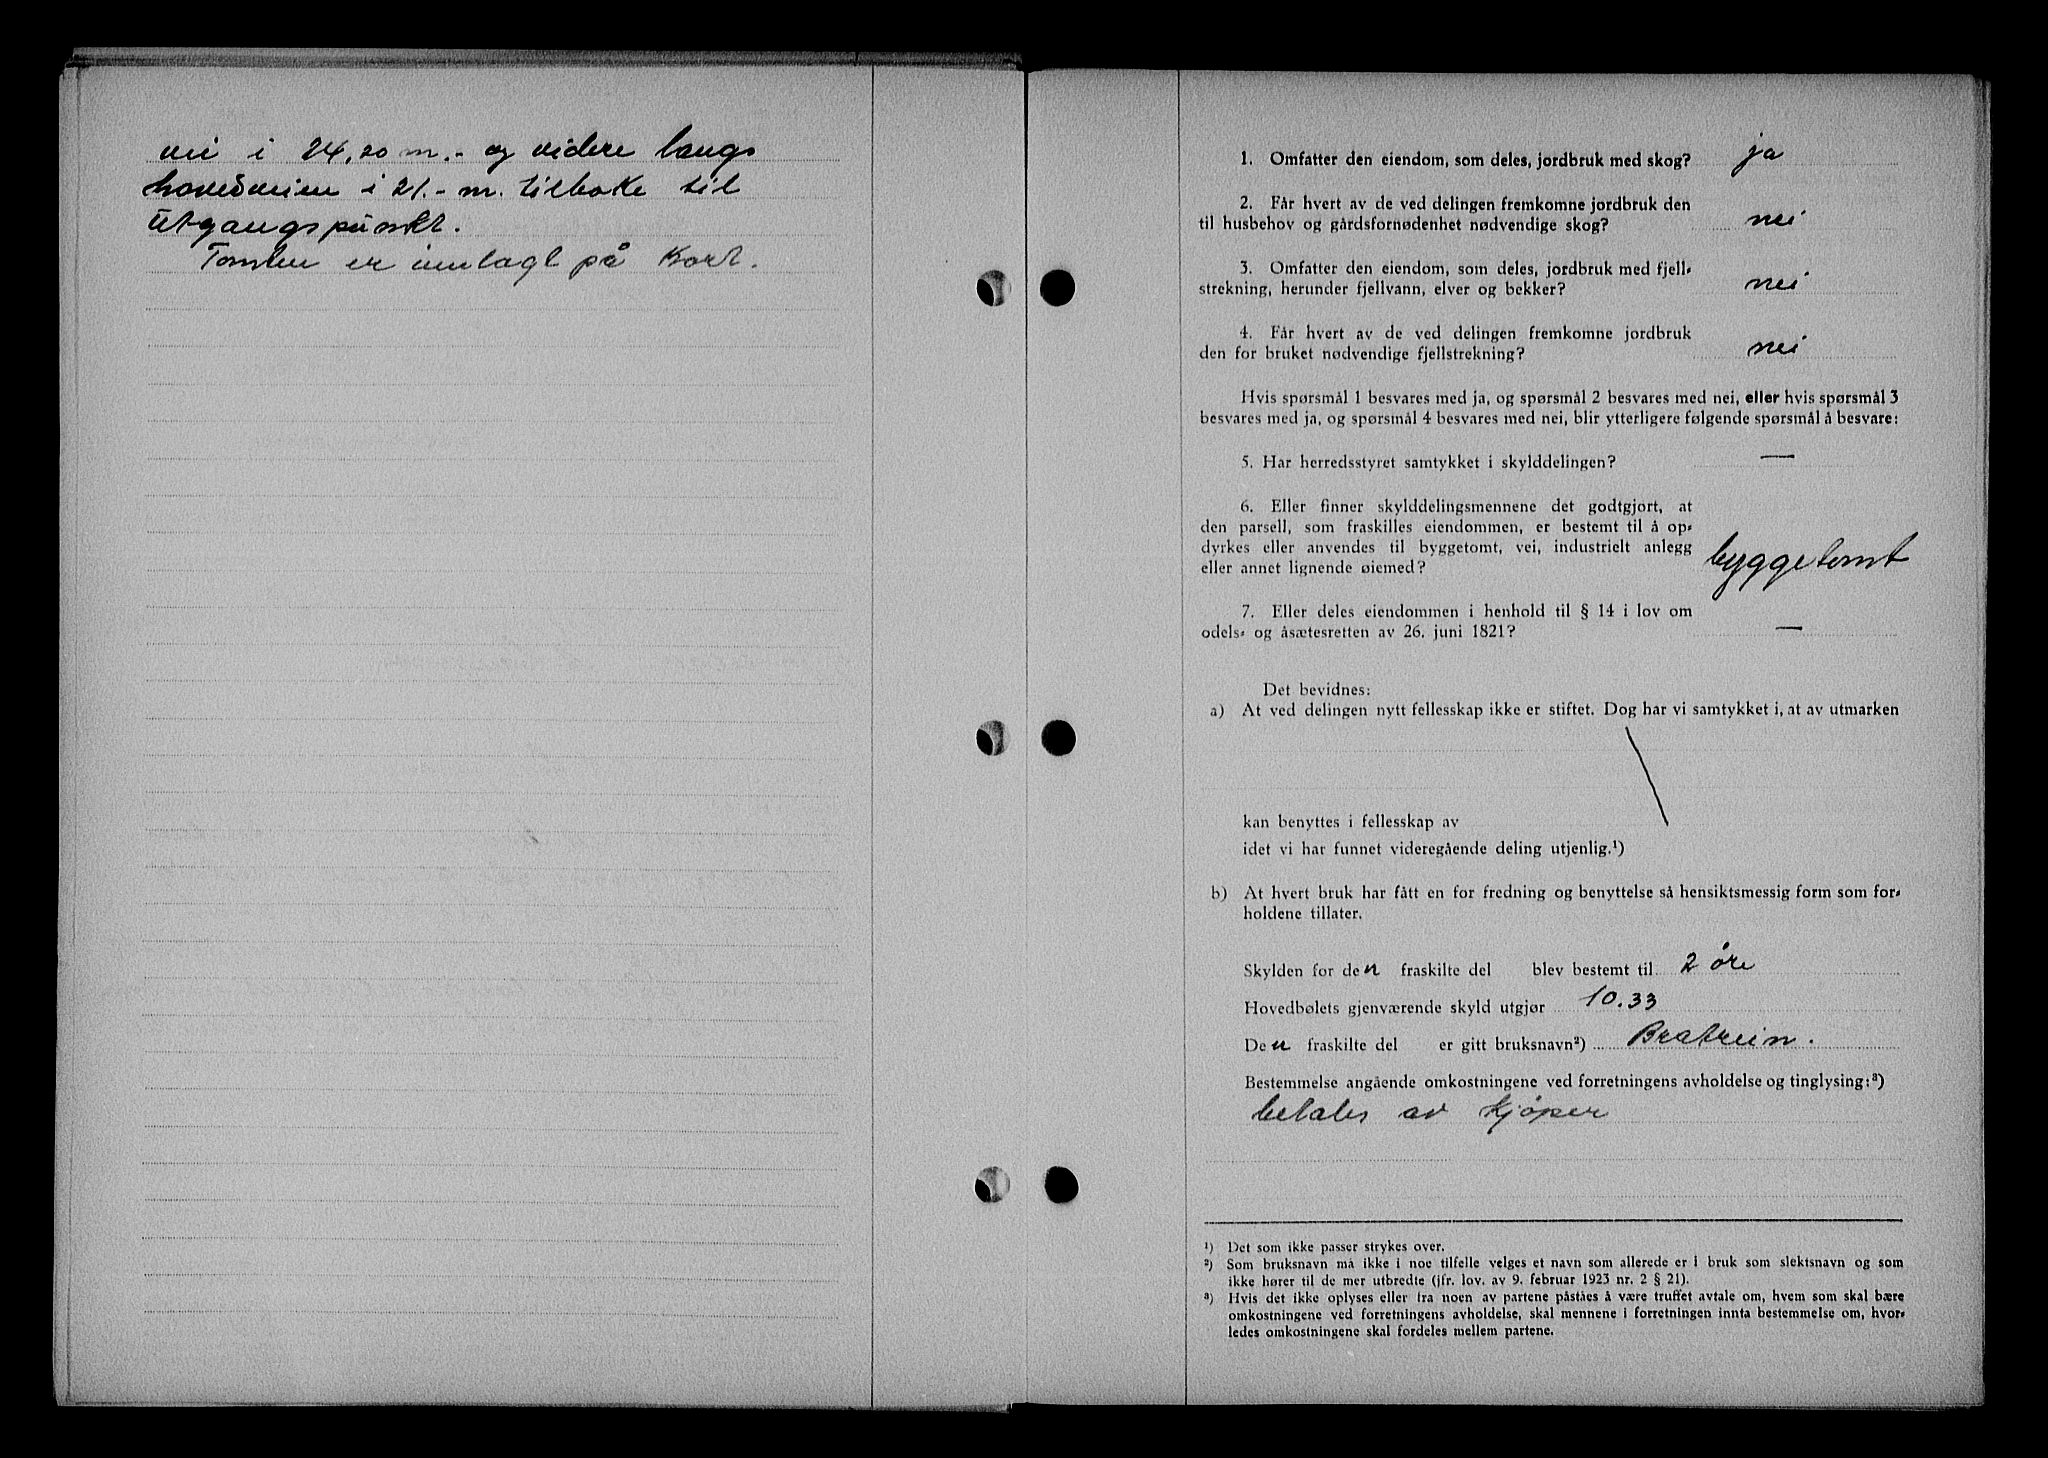 vei i 24,20 m.- og videre langs
hovedveien i 21.- m. tilbake til
utgangspunkt.
Tomten er innlagt på kart.
1. Omfatter den eiendom, som deles, jordbruk med skog? ja
2. Får hvert av de ved delingen fremkomne jordbruk den
til husbehov og gårdsfornødenhet nødvendige skog? nei
3. Omfatter den eiendom, som deles, jordbruk med fjell-
strekning, herunder fjellvann, elver og bekker? nei
4. Får hvert av de ved delingen fremkomne jordbruk
den for bruket nødvendige fjellstrekning? nei
Hvis spørsmål 1 besvares med ja, og spørsmål 2 besvares med nei, eller hvis spørsmål 3
besvares med ja, og spørsmål 4 besvares med nei, blir ytterligere følgende spørsmål å besvare:
5. Har herredsstyret samtykket i skylddelingen? —
6. Eller finner skylddelingsmennene det godtgjort, at
den parsell, som fraskilles eiendommen, er bestemt til å op-
dyrkes eller anvendes til byggetomt, vei, industrielt anlegg
eller annet lignende øiemed? byggetomt
7. Eller deles eiendommen i henhold til § 14 i lov om
odels- og åsætesretten av 26. juni 1821? —
Det bevidnes:
a) At ved delingen nytt fellesskap ikke er stiftet. Dog har vi samtykket i, at av utmarken
kan benyttes i fellesskap av
idet vi har funnet videregående deling utjenlig.¹)
b) At hvert bruk har fått en for fredning og benyttelse så hensiktsmessig form som for-
holdene tillater.
Skylden for den fraskilte del blev bestemt til 2 øre
Hovedbølets gjenværende skyld utgjør 10.33
Den fraskilte del er gitt bruksnavn²) Bratrein.
Bestemmelse angående omkostningene ved forretningens avholdelse og tinglysing:³)
betales av kjøper
¹) Det som ikke passer strykes over.
²) Som bruksnavn må ikke i noe tilfelle velges et navn som allerede er i bruk som slektsnavn og som
ikke hører til de mer utbredte (jfr. lov. av 9. februar 1923 nr. 2 § 21).
³) Hvis det ikke oplyses eller fra noen av partene påståes å være truffet avtale om, hvem som skal bære
omkostningene ved forretningens avholdelse, skal mennene i forretningen innta bestemmelse om, hvor-
ledes omkostningene skal fordeles mellem partene.